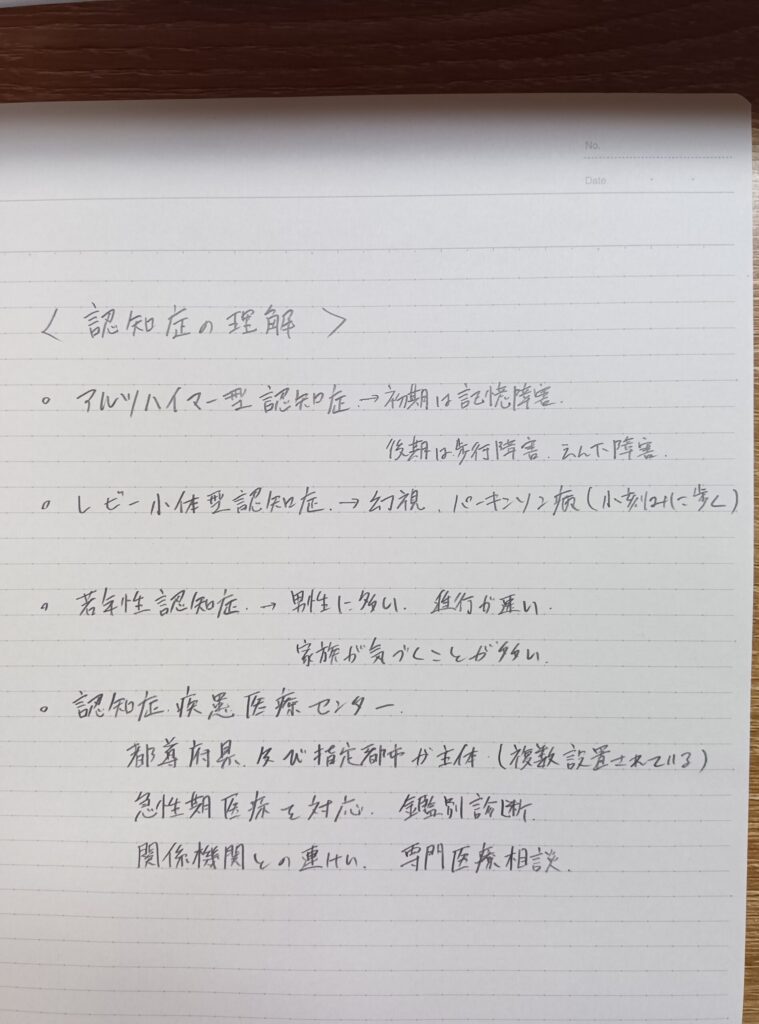 No.
Date
< 認知症の理解 >
。アルツハイマー型認知症 → 初期は記憶障害.
後期は歩行障害. えん下障害.
。レビー小体型認知症. → 幻視. パーキンソン病(小刻みに歩く)
。若年性認知症. → 男性に多い. 進行が速い.
家族が気づくことが多い.
。認知症.疾患医療センター.
都道府県. 及び指定都市が主体. (複数設置されている)
急性期医療を対応. 鑑別診断.
関係機関との連けい. 専門医療相談.